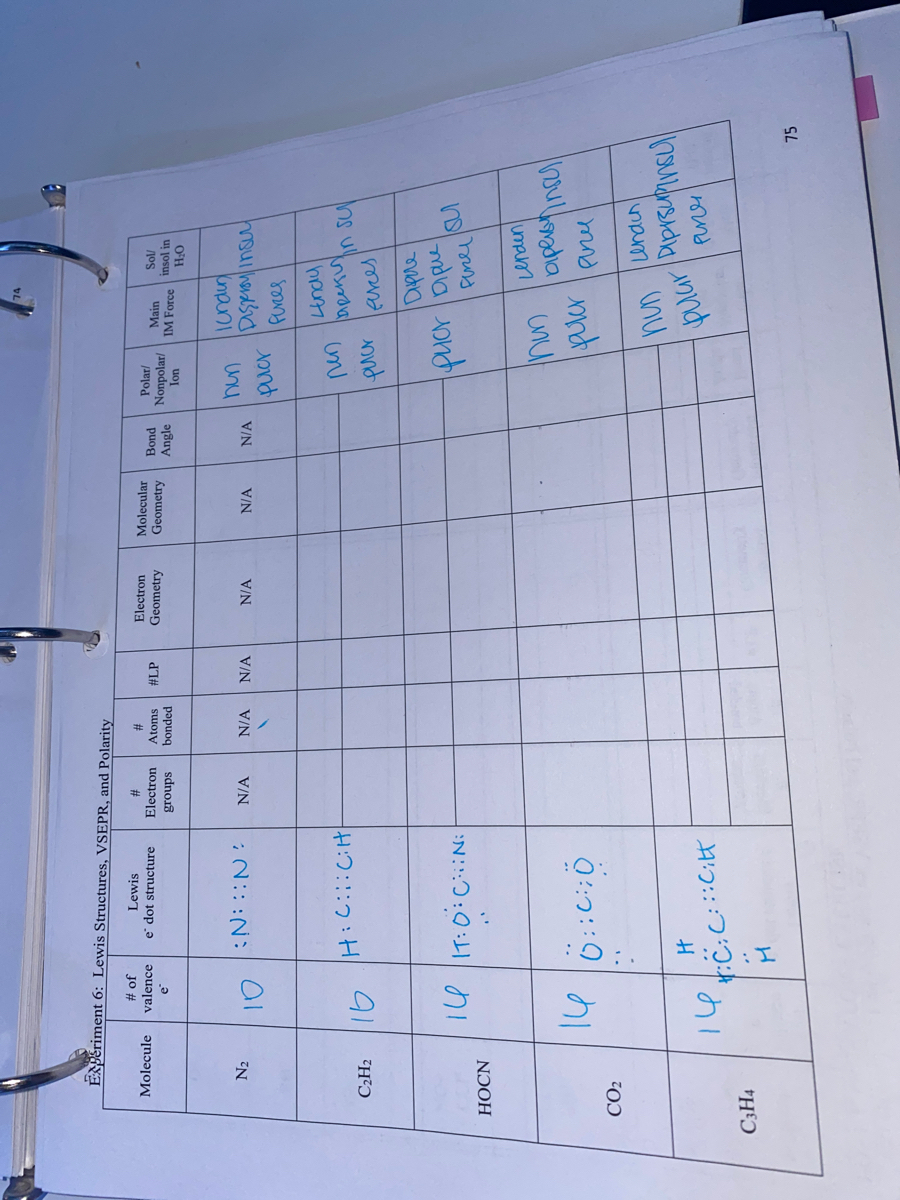 74
Experiment 6: Lewis Structures, VSEPR, and Polarity
Molecule
# of
valence
e⁻
Lewis
e⁻ dot structure
#
Electron
groups
#
Atoms
bonded
#LP
Electron
Geometry
Molecular
Geometry
Bond
Angle
Polar/
Nonpolar/
Ion
Main
IM Force
Sol/
insol in
H₂O
N₂
10
:N:::N:
N/A
N/A
N/A
N/A
N/A
N/A
non
polar
london
Dispersion
forces
insol
C₂H₂
10
H:C:::C:H
non
polar
london
dispersion
forces
in sol
HOCN
polar
Dipole
Dipole
Force
sol
CO₂
non
polar
london
dispersion
force
insol
C₃H₄
non
polar
london
Dipsrsion
forces
insol
75